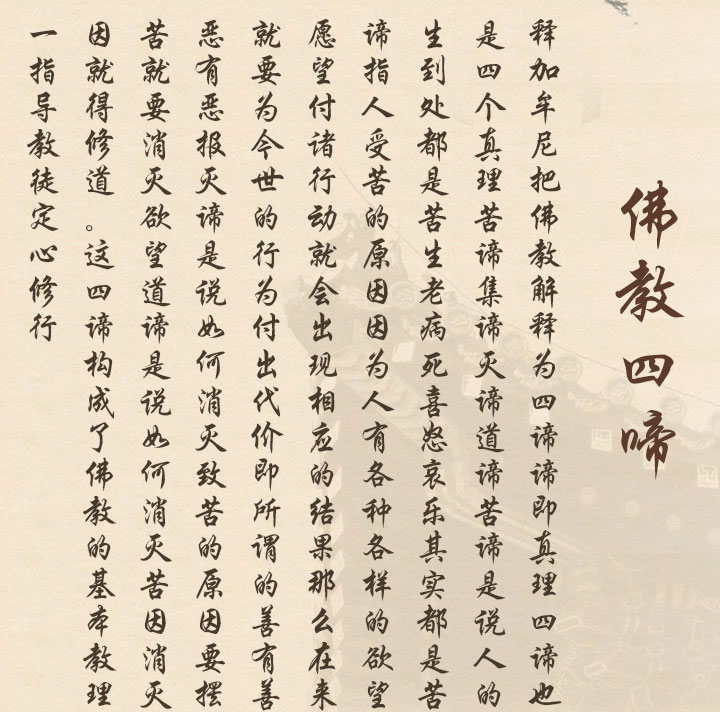 佛教四啼
释加牟尼把佛教解释为四谛谛即真理四谛也
是四个真理苦谛集谛灭谛道谛苦谛是说人的
生到处都是苦生老病死喜怒哀乐其实都是苦
谛指人受苦的原因因为人有各种各样的欲望
愿望付诸行动就会出现相应的结果那么在来
就要为今世的行为付出代价即所谓的善有善
恶有恶报灭谛是说如何消灭致苦的原因要摆
苦就要消灭欲望道谛是说如何消灭苦因消灭
因就得修道。这四谛构成了佛教的基本教理
一指导教徒定心修行